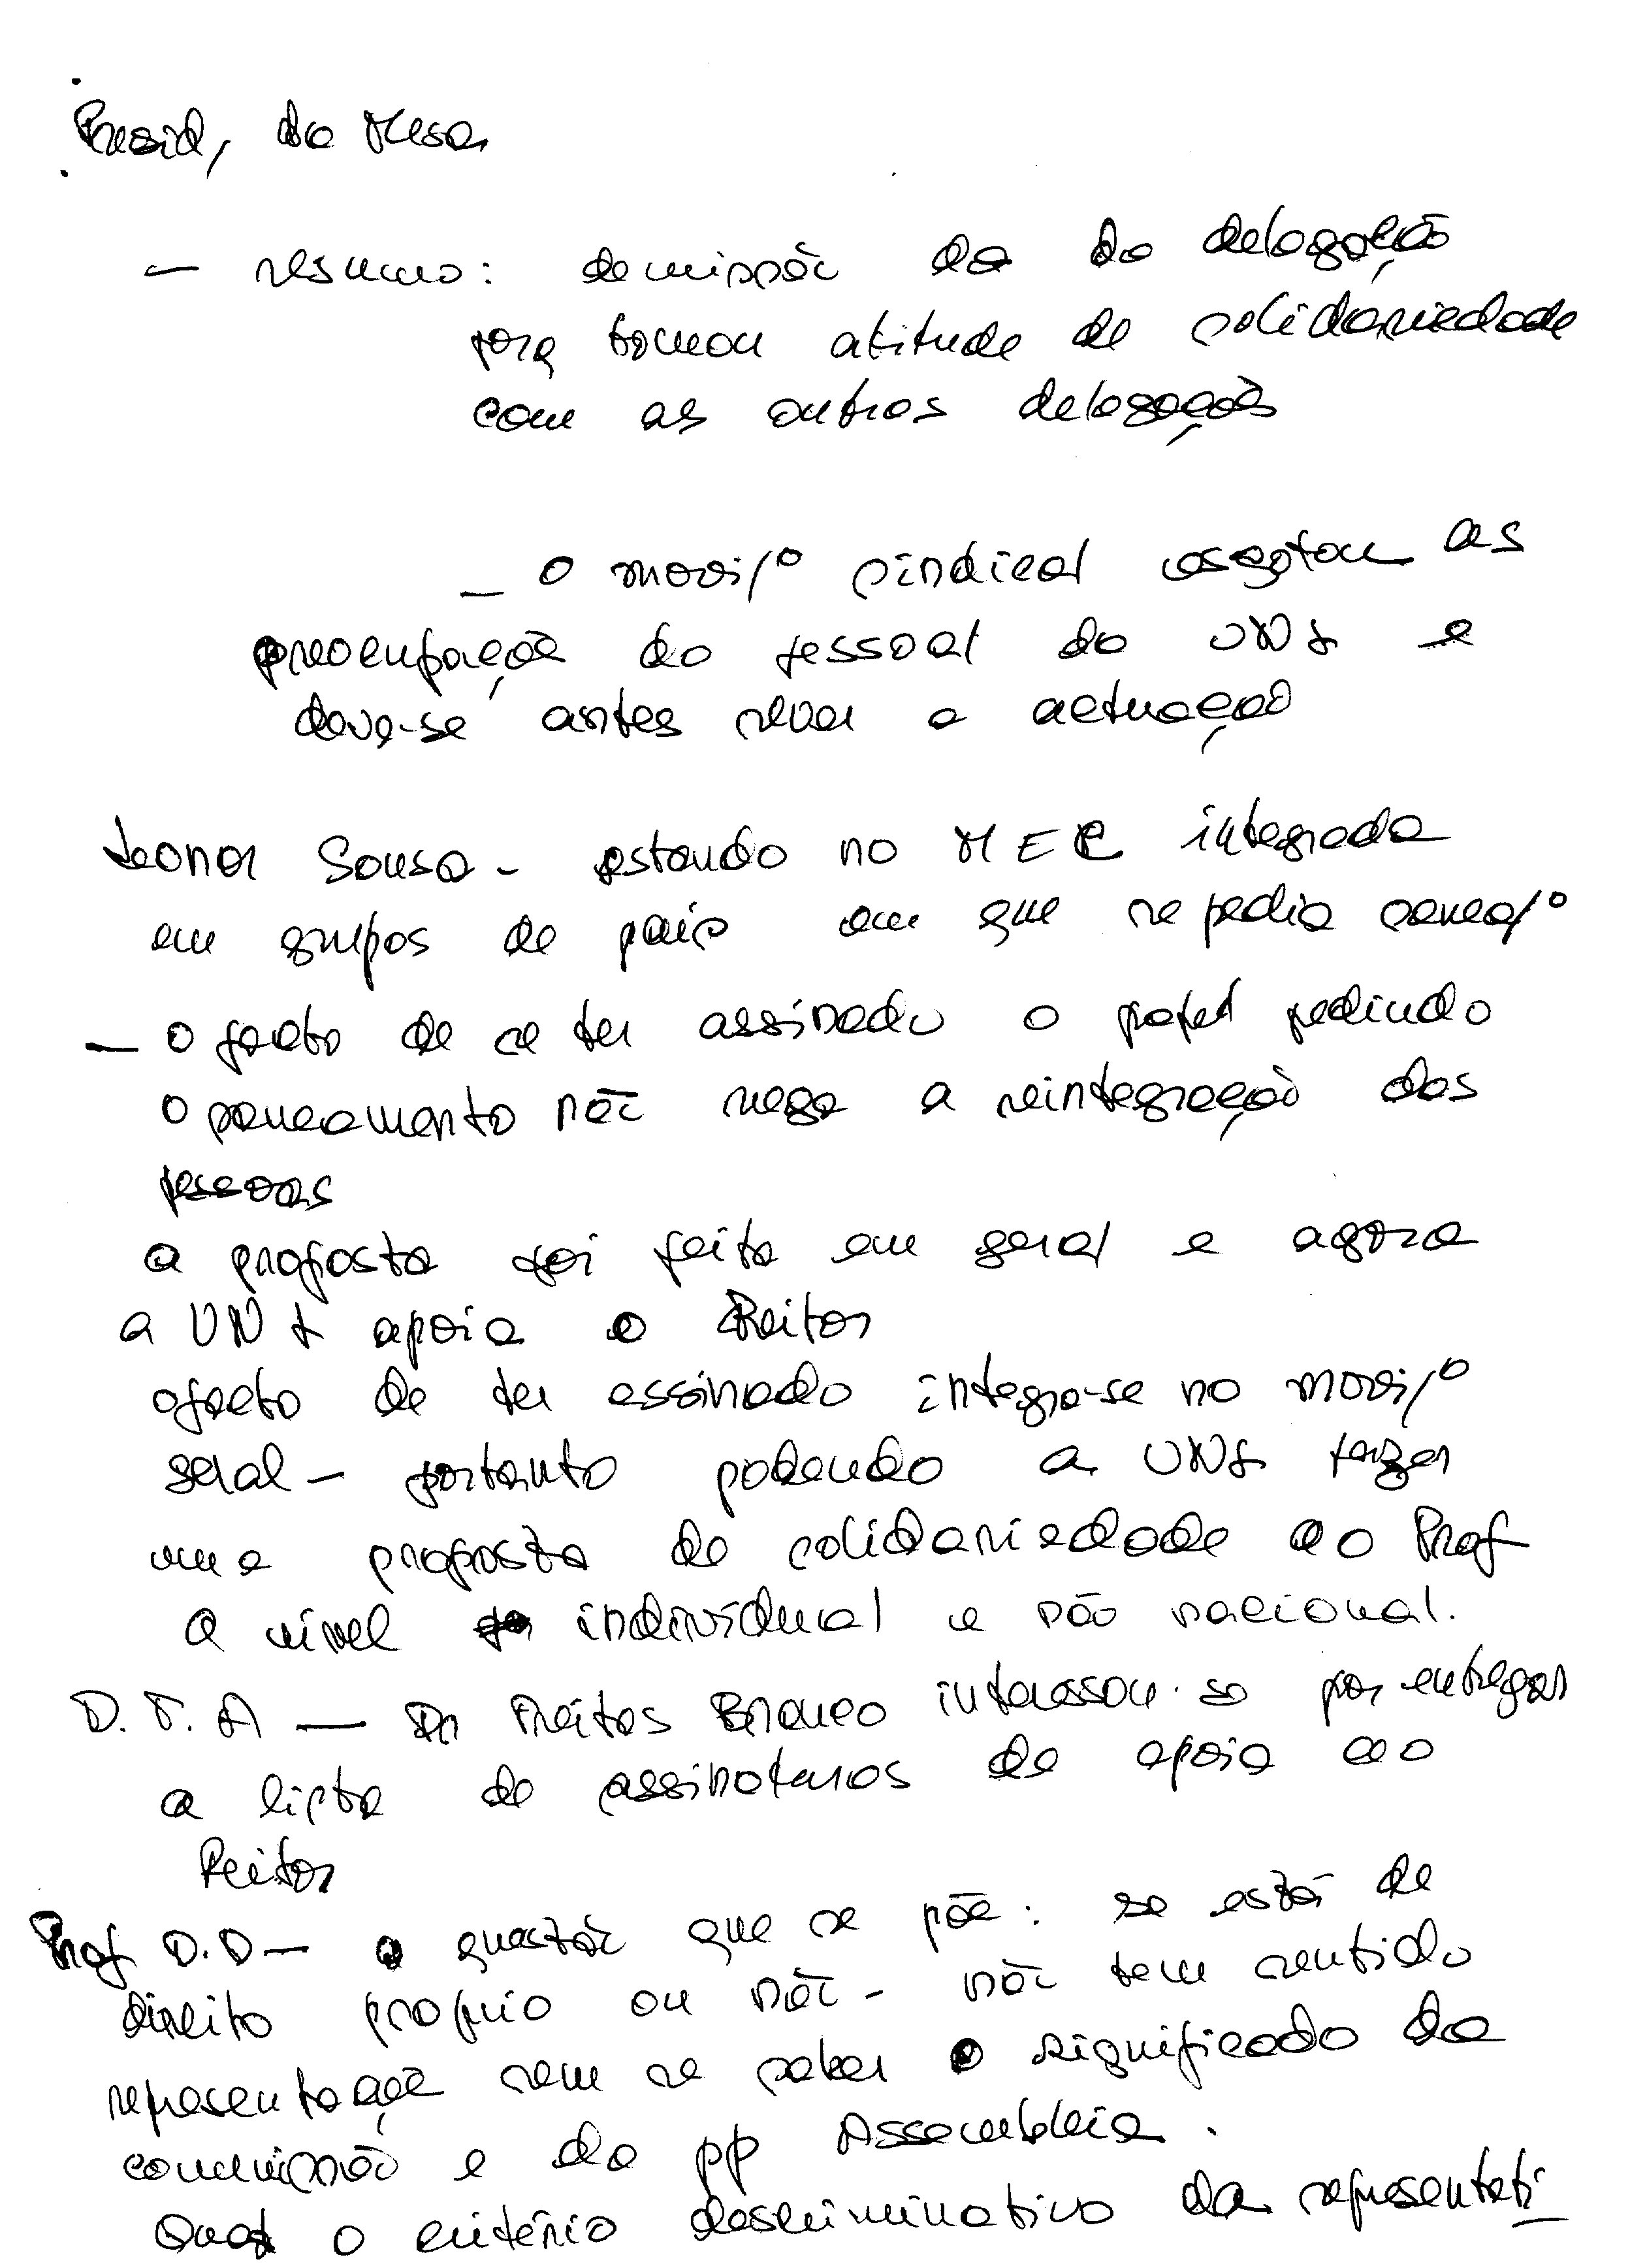 Presid, da Mesa
— resumo: demissão da da delegação
para tomou atitude de solidariedade
com as outras delegações
— o movi/º sindical esgotou as
preocupação do pessoal da UNL e
deve-se antes rever a actuação
Leonor Sousa - estando no MEC integrada
em grupos de país em que se pedia sanea/º
— o facto de se ter assinado o papel pedindo
o saneamento não nega a reintegração das
pessoas
a proposta foi feita em geral e agora
a UNL apoia o Reitor
o facto de ter assinado integra-se no movi/º
geral — portanto podendo a UNL fazer
uma proposta de solidariedade ao Prof
a nível individual e não nacional.
D. T. A — Dr Freitas Branco interessou-se por entregar
a lista de assinaturas de apoio ao
Reitor
Prof D.D — a questão que se põe: se está de
direito proprio ou não - não tem sentido
representação sem se saber o significado da
comissão e da pp Assembleia.
Qual o critério descriminativo da representati-